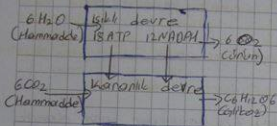 6H2O
(Hammadde)
Işıklı devre
18ATP 12NADPH
6O2
(ürün)
6CO2
(Hammadde)
Karanlık devre
C6H12O6
(glikoz)